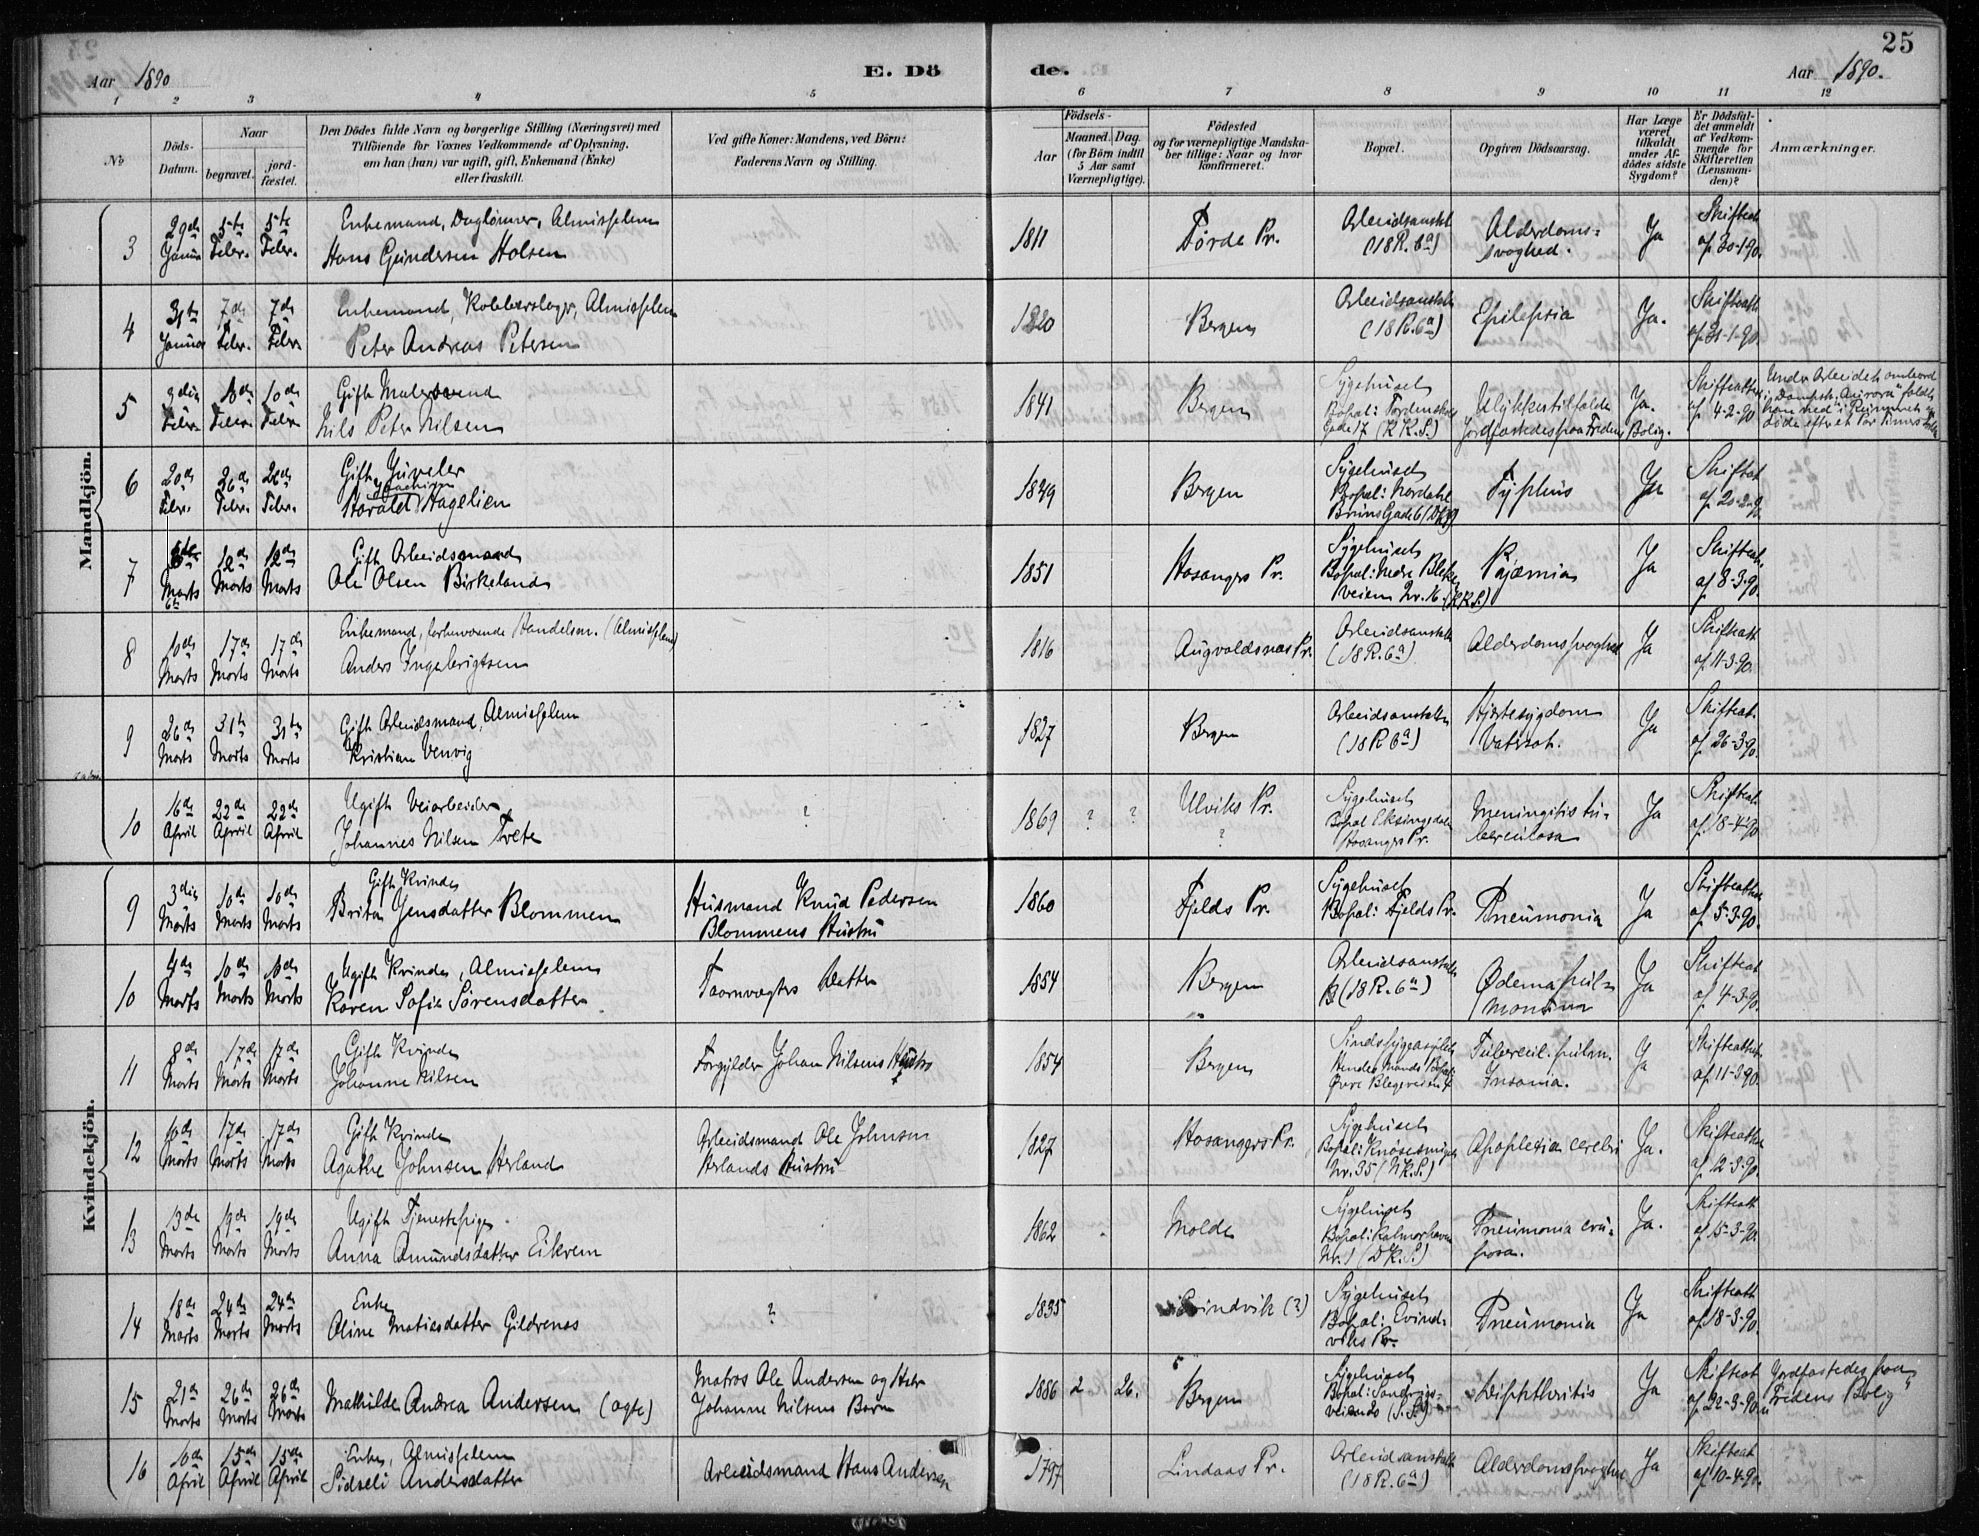 25
Aar 1890
E. Dö
de.
Aar 1890.
1 2 3 4 5 6 7 8 9 10 11 12
No
Döds-Datum.
Naar
begravet.
jord-fæstet.
Den Dödes fulde Navn og borgerlige Stilling (Næringsvei) med
Tilföiende for Voxnes Vedkommende af Oplysning,
om han (hun) var ugift, gift, Enkemand (Enke)
eller fraskilt.
Ved gifte Koner: Mandens, ved Börn:
Faderens Navn og Stilling.
Födsels-
Aar
Maaned. Dag.
(for Börn indtil
5 Aar samt
Værnepligtige).
Födested
og for værnepligtige Mandska-
ber tillige: Naar og hvor
konfirmeret.
Bopæl.
Opgiven Dödsaarsag.
Har Læge
været
tilkaldt
under Af-
dödes sidste
Sygdom?
Er Dödsfal-
det anmeldt
af Vedkom-
mende for
Skifteretten
(Lensman-
den)?
Anmærkninger.
Mandkjön.
3 29de Januar 5te Febr. 5te Febr. Enkemand, Daglönner, Almisselem
Hans Gundersen Holsen 1811 Förde Pr. Arbeidsanstalt (18 R. 6a) Alderdoms-svaghed. Ja Skifteat. af 30-1-90.
4 31te Januar 7de Febr. 7de Febr. Enkemand, Kobberslager, Almisselem
Peter Andreas Petersen 1820 Bergen Arbeidsanstalten (18 R. 6a) Epilepsia Ja. Skifteatt. af 31-1-90.
5 3die Febr. 10de Febr. 10de Febr. Gift Malersvend
Nils Peter Nilsen 1841 Bergen Sygehuset Bopæl: Tordenskjolds Gade 17 (K.K.S.) Ulykkestilfælde Jordfæstedes paa Fredens Bolig. Ja. Skifteattest af 4-2-90 Under Arbeidet ombord
i Dampsk. "Aurora" faldt
han ned i Rummet og
døde efter et Par Timers
6 20de Febr. 26de Febr. 26de Febr. Gift Juveler
Harald Joachim Hagelien 1849 Bergen Sygehuset Bopæl: Nordahl Bruns Gade 6 Typhus Ja Skifteat. af 20-2-90
7 Marts 12de Marts 12de Marts Gift Arbeidsmand
Ole Olsen Birkeland 1851 Hosangers Pr. Sygehuset Bopæl: Nedre Blekeveien Nr. 16. (K.K.S.) Pyæmia Ja Skifteat. af 8-3-90.
8 10de Marts 17de Marts 17de Marts Enkemand, forhenværende Handelsm. (Almisselem)
Anders Ingebrigtsen 1816 Augvaldsnæs Pr. Arbeidsanstalten (18 R. 6a) Alderdomssvaghed Ja Skifteatt. af 11-3-90.
9 26de Marts 31te Marts 31te Marts Gift Arbeidsmand, Almisselem
Kristian Venvig 1827 Bergen Arbeidsanstalten (18 R 6a) Hjertesygdom Vatersot. Ja Skifteat. af 26-3-90.
10 16de April 22de April 22de April Ugift Veiarbeider
Johannes Nilsen Tvete ? 1869 ? ? Ulviks Pr. ? Sygehuset Bopæl Eksingedalen Hosangers Pr. Meningitis tu-berculosa Ja Skifteat. af 18-4-90
Kvindekjön.
9 3die Marts 10de Marts 10de Marts Gift Kvinde
Brita Jensdatter Blommen Husmand Knud Pedersen
Blommens Hustru 1860 Fjelds Pr. Sygehuset Bopæl: Fjelds Pr. Pneumonia Ja Skifteattest af 5-3-90.
10 4de Marts 10de Marts 10de Marts Ugift Kvinde, Almisselem
Karen Sofie Sörensdatter Taarnvægters Datter 1854 Bergen Arbeidsanstalten (18 R. 6a) Ødema pul-monum Ja Skifteat. af 4-3-90.
11 8de Marts 17de Marts 17de Marts Gift Kvinde
Johanne Nilsen Forgylder Johan Nilsens Hustru 1854 Bergen Sindssygeasylet Hendes Mands Bopæl: Øvre Blegeveien Tubercul. pulm. Insania. Ja Skifteattest af 11-3-90.
12 10de Marts 17de Marts 17de Marts Gift Kvinde
Agathe Johnsen Herland Arbeidsmand Ole Johnsen
Herlands Hustru 1827 Hosangers Pr. Sygehuset Bopæl: Knösesmuget Nr. 35 (N.K.S.) Apoplexia cerebri Ja. Skifteattest af 12-3-90.
13 13de Marts 19de Marts 19de Marts Ugift Tjenestepige.
Anna Amundsdatter Eikrem 1862 Molde Sygehuset Bopæl: Kalmarhaven Nr. 1 (D.K.S.) Pneumonia cru-posa. Ja. Skifteatt. af 15-3-90.
14 18de Marts 24de Marts 24de Marts Enke
Oline Matiasdatter Gildrenæs ? 1835 Evindvik (?) Sygehuset Bopæl: Evind-viks Pr. Pneumonia Ja Skifteatt. af 18-3-90.
15 21de Marts 26de Marts 26de Marts Mathilde Andrea Andersen (ægte) Matros Ole Andersen og Hstr
Johanne Nilsens Barn 1886 2 26. Bergen Sygehuset Bopæl: Sandvigs-veien Diphtheritis Ja Skifteat. af 22-3-90. Jordfæstedes paa
"Fredens Bolig"
16 10de April 15de April 15de April Enke, Almisselem
Sidseli Andersdatter Arbeidsmand Hans Andersen 1797 Lindaas Pr. Arbeidsanstalten (18 R. 6a) Alderdomssvaghed Ja Skifteat. af 10-4-90.